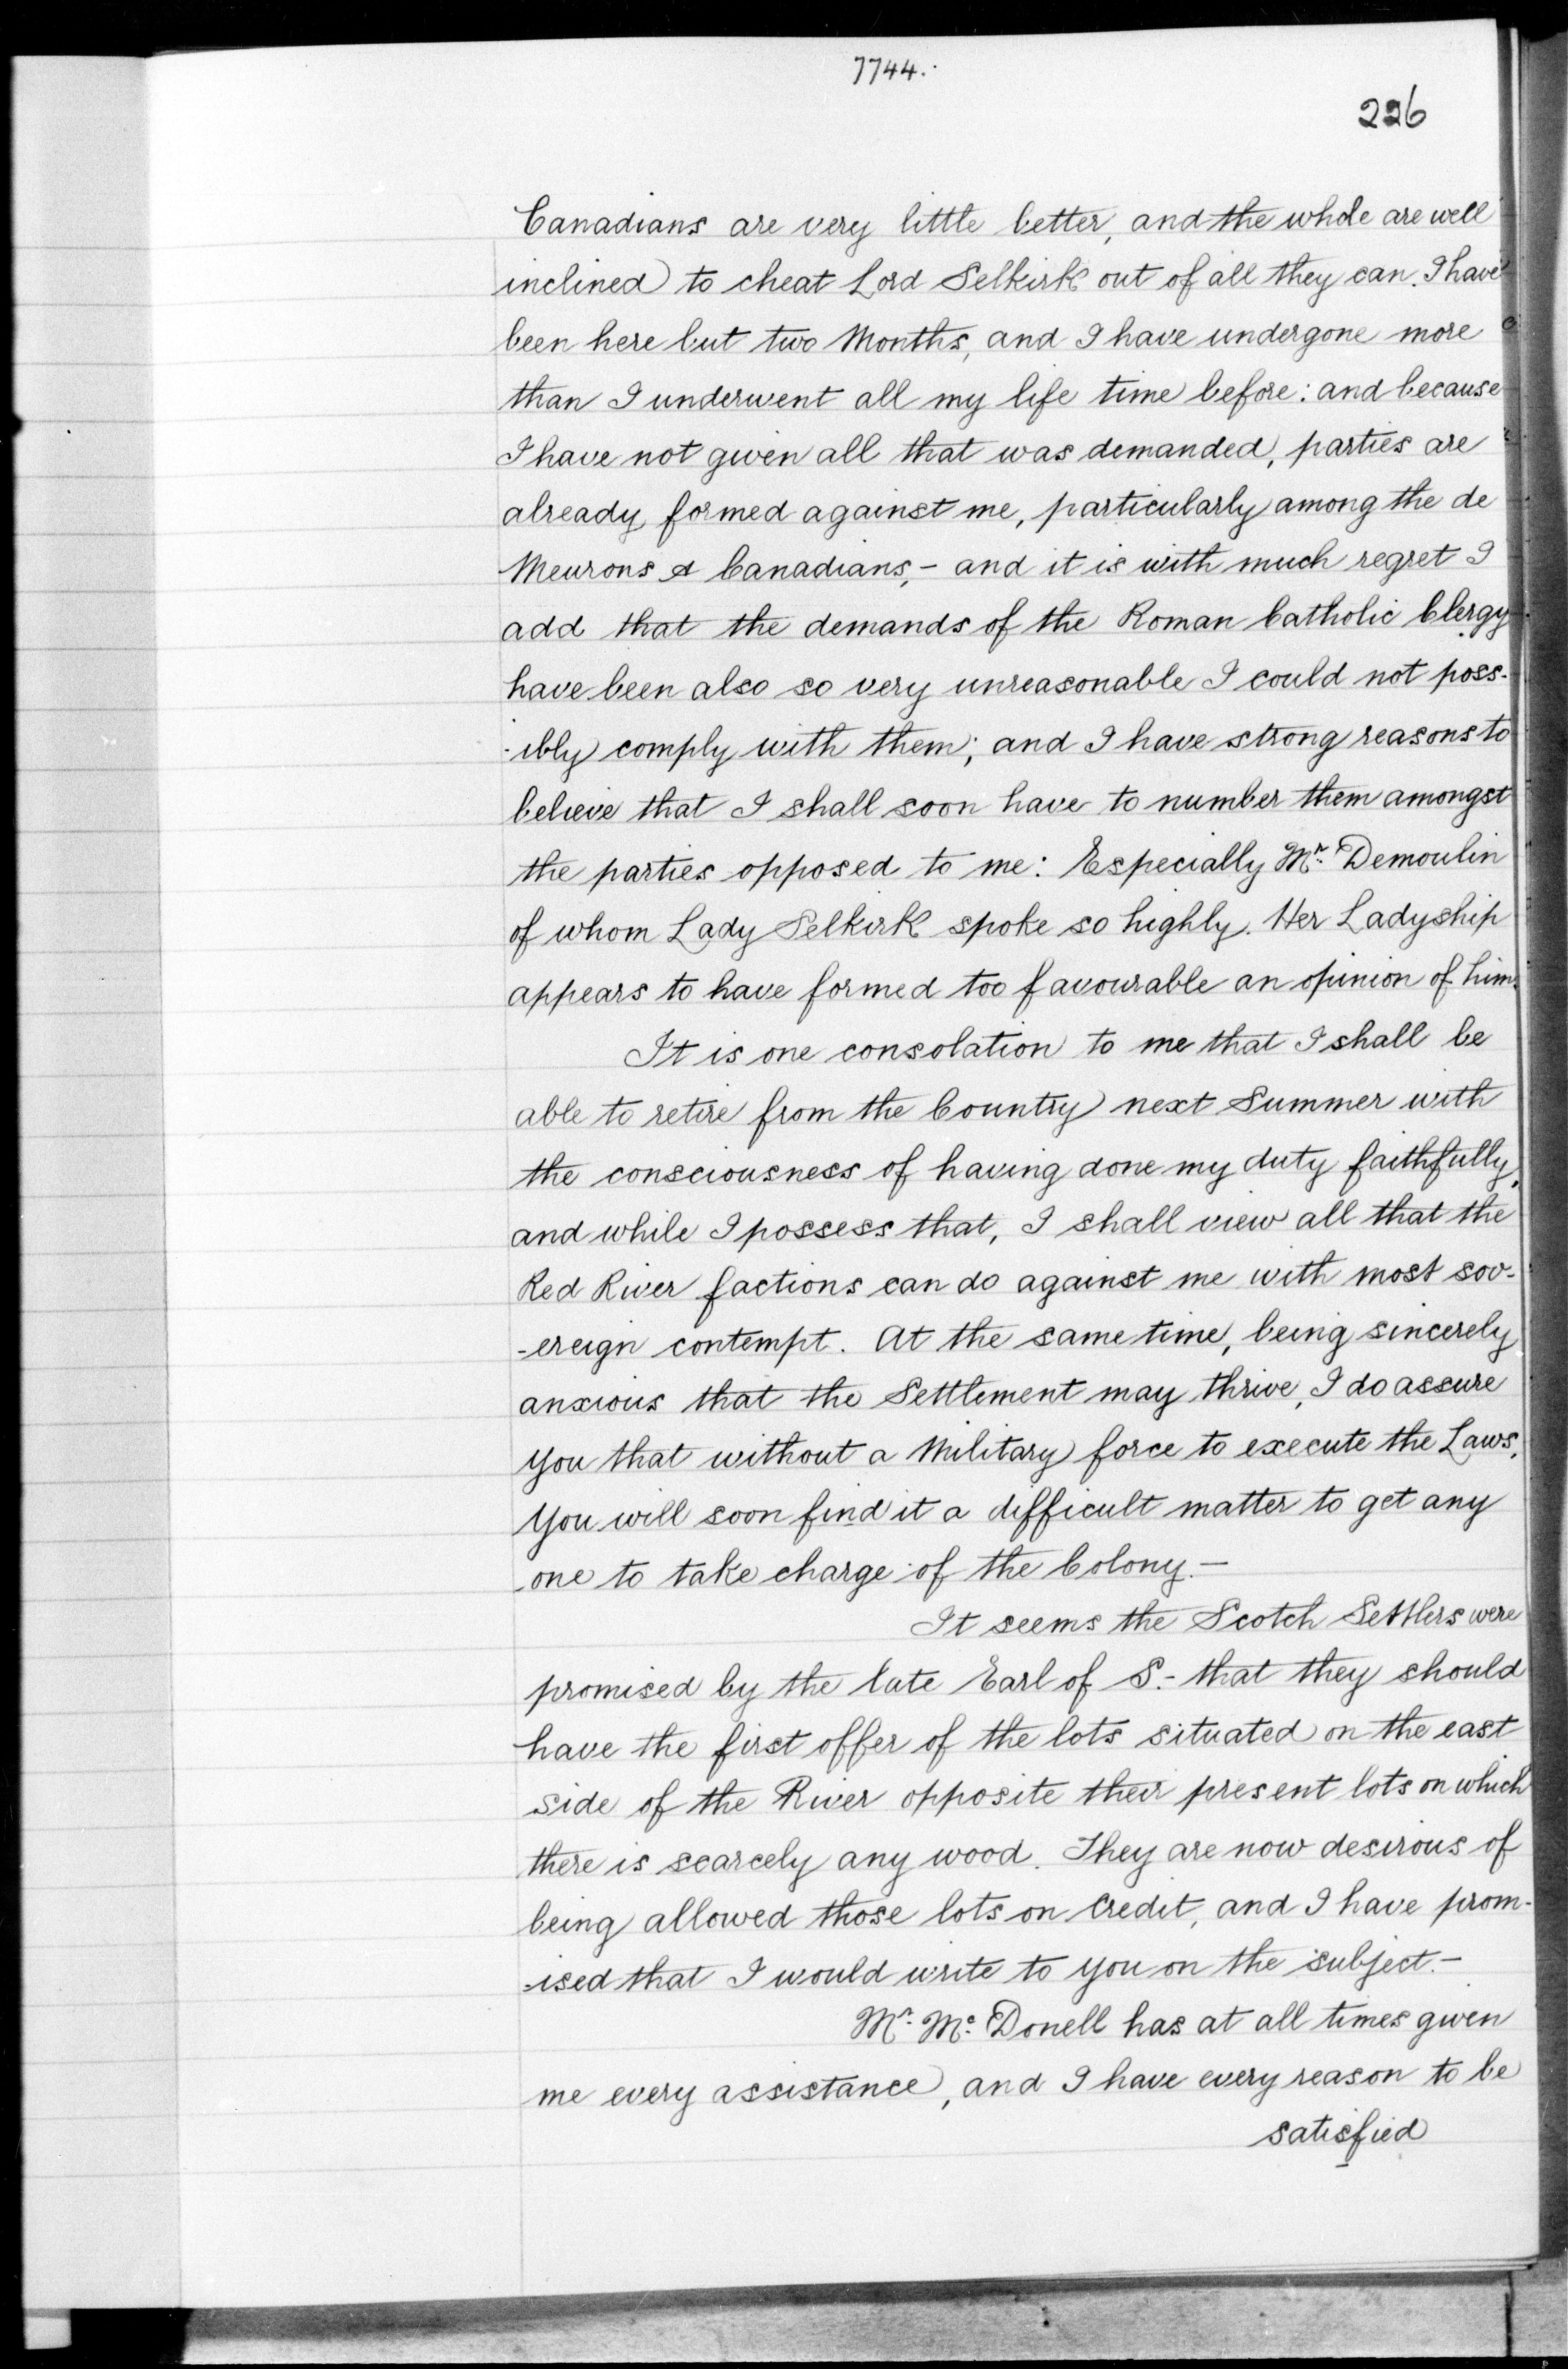 7744.
226
Canadians are very little better, and the whole are well
inclined to cheat Lord Selkirk out of all they can. I have
been here but two Months, and I have undergone more
than I underwent all my life time before: and because
I have not given all that was demanded, parties are
already formed against me, particularly among the de
Meurons & Canadians,- and it is with much regret I
add that the demands of the Roman Catholic Clergy
have been also so very unreasonable I could not poss-
-ibly comply with them; and I have strong reasons to
believe that I shall soon have to number them amongst
the parties opposed to me: Especially Mr. Demoulin
of whom Lady Selkirk spoke so highly. Her Ladyship
appears to have formed too favourable an opinion of him.
It is one consolation to me that I shall be
able to retire from the Country next Summer with
the consciousness of having done my duty faithfully,
and while I possess that, I shall view all that the
Red River factions can do against me with most sov-
-ereign contempt. At the same time, being sincerely
anxious that the Settlement may thrive, I do assure
you that without a Military force to execute the Laws,
You will soon find it a difficult matter to get any
one to take charge of the Colony.-
It seems the Scotch Settlers were
promised by the late Earl of S.- that they should
have the first offer of the lots situated on the east
side of the River opposite their present lots on which
there is scarcely any wood. They are now desirous of
being allowed those lots on Credit, and I have prom-
-ised that I would write to you on the subject.-
Mr. Mc. Donell has at all times given
me every assistance, and I have every reason to be
satisfied